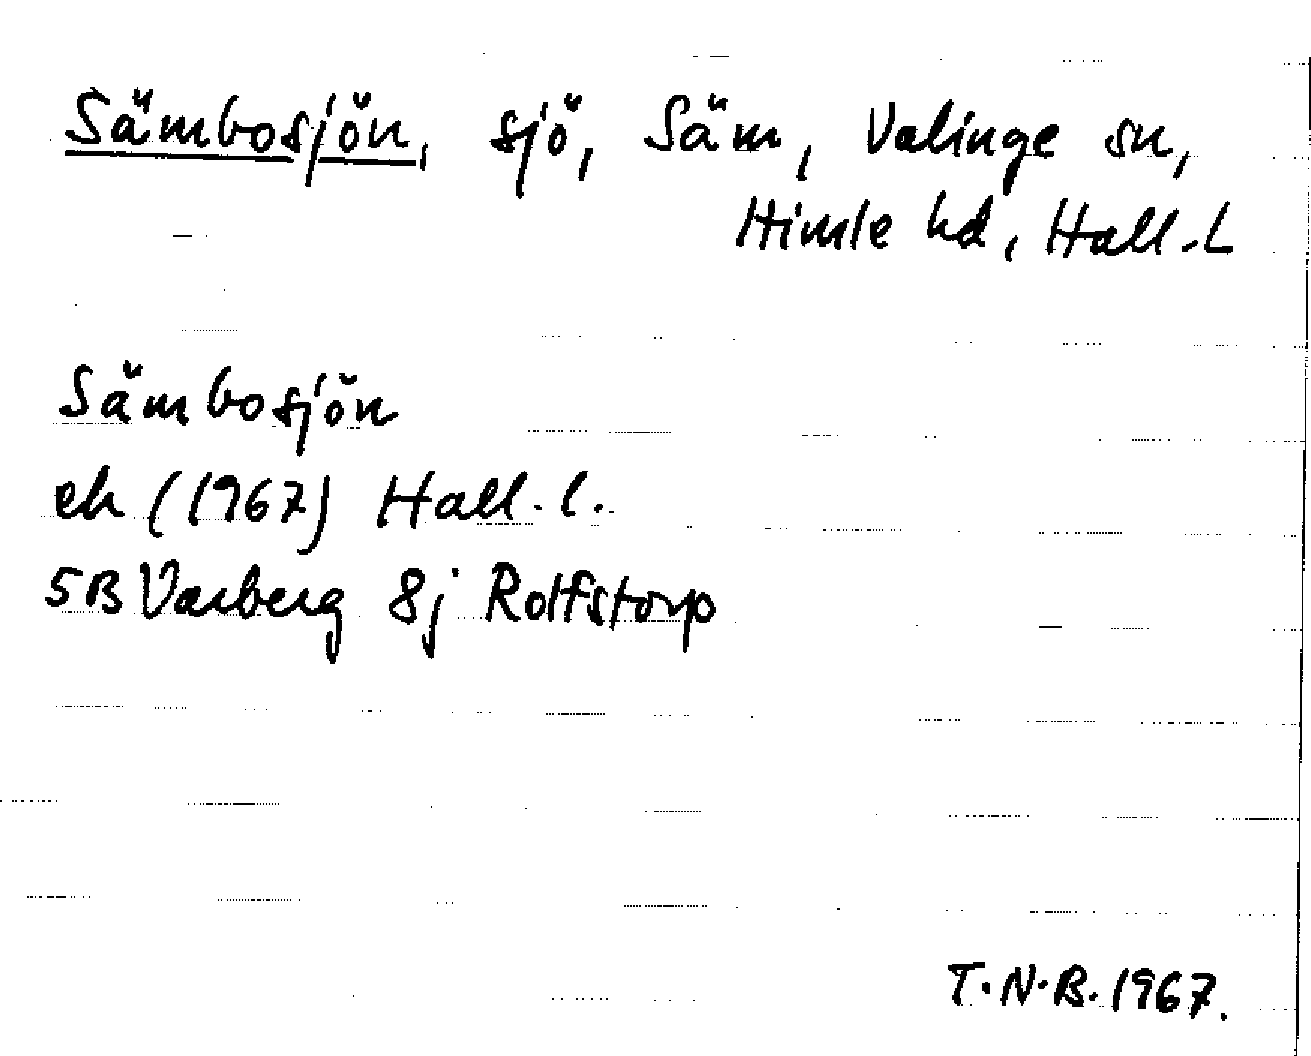 Sämbosjön, sjö, Säm, Valinge sn,
Himle hd, Hall.L
Sämbosjön
ek (1967) Hall. l.
5B Varberg 8j Rolfstorp
T.N.B. 1967.